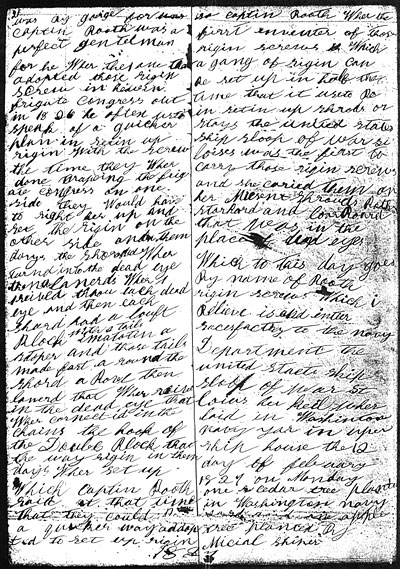 was by gange for was
captin Booth was a
perfect gentelman
for he Wher the one that
adopted those rigin
screw in heaven
frigate Congress out
in 1826 he often used to
speak of a quicker
plan in setin up
rigin With the screw
the time they Wher
done the frig
ate Congress in one
side they Would have
to right her up and
get the rigin on the
other side and in them
days the Sherouds Wher
turnd in to the dead eye
the Lanerds Wher
reived throw each dead
eye and then each
shard had a
Block a tails a
stoper and than tails
made fast around the
shord a Bove then
lanerd that Wher reived
in the dead eye that
Wher conected in the
chains the hook of
the Double Block that
the way rigin in them
days Wher set up
Which Captin Booth
said at that time
that they could
a quicker way adop
ted to set up rigin
so captin Booth Wher the
first enventer of those
rigin screws Which
a gang of rigin can
be set up in half the
time that it used to
in setin up shrods or
stays the united states
ship sloop of war st
loises was the first to
carry those rigin screws
and she caried them on
her Misen Shrouds Both
starbord and Lore Board
that was in the
place of dead eyes
Which to this day goes
By name of Booth
rigin screws Which i
Believe is and enter
sacesfactry to the navy
Department the
united states ship
sloop of war St
loises her keel Wher
laid in Washington
navy yar in uper
ship house the 12
day of febuary
1827 on Monday
one seedar tree planted
in Washington navy
yard and one apple
tree planted By
Micial Shiner
1826